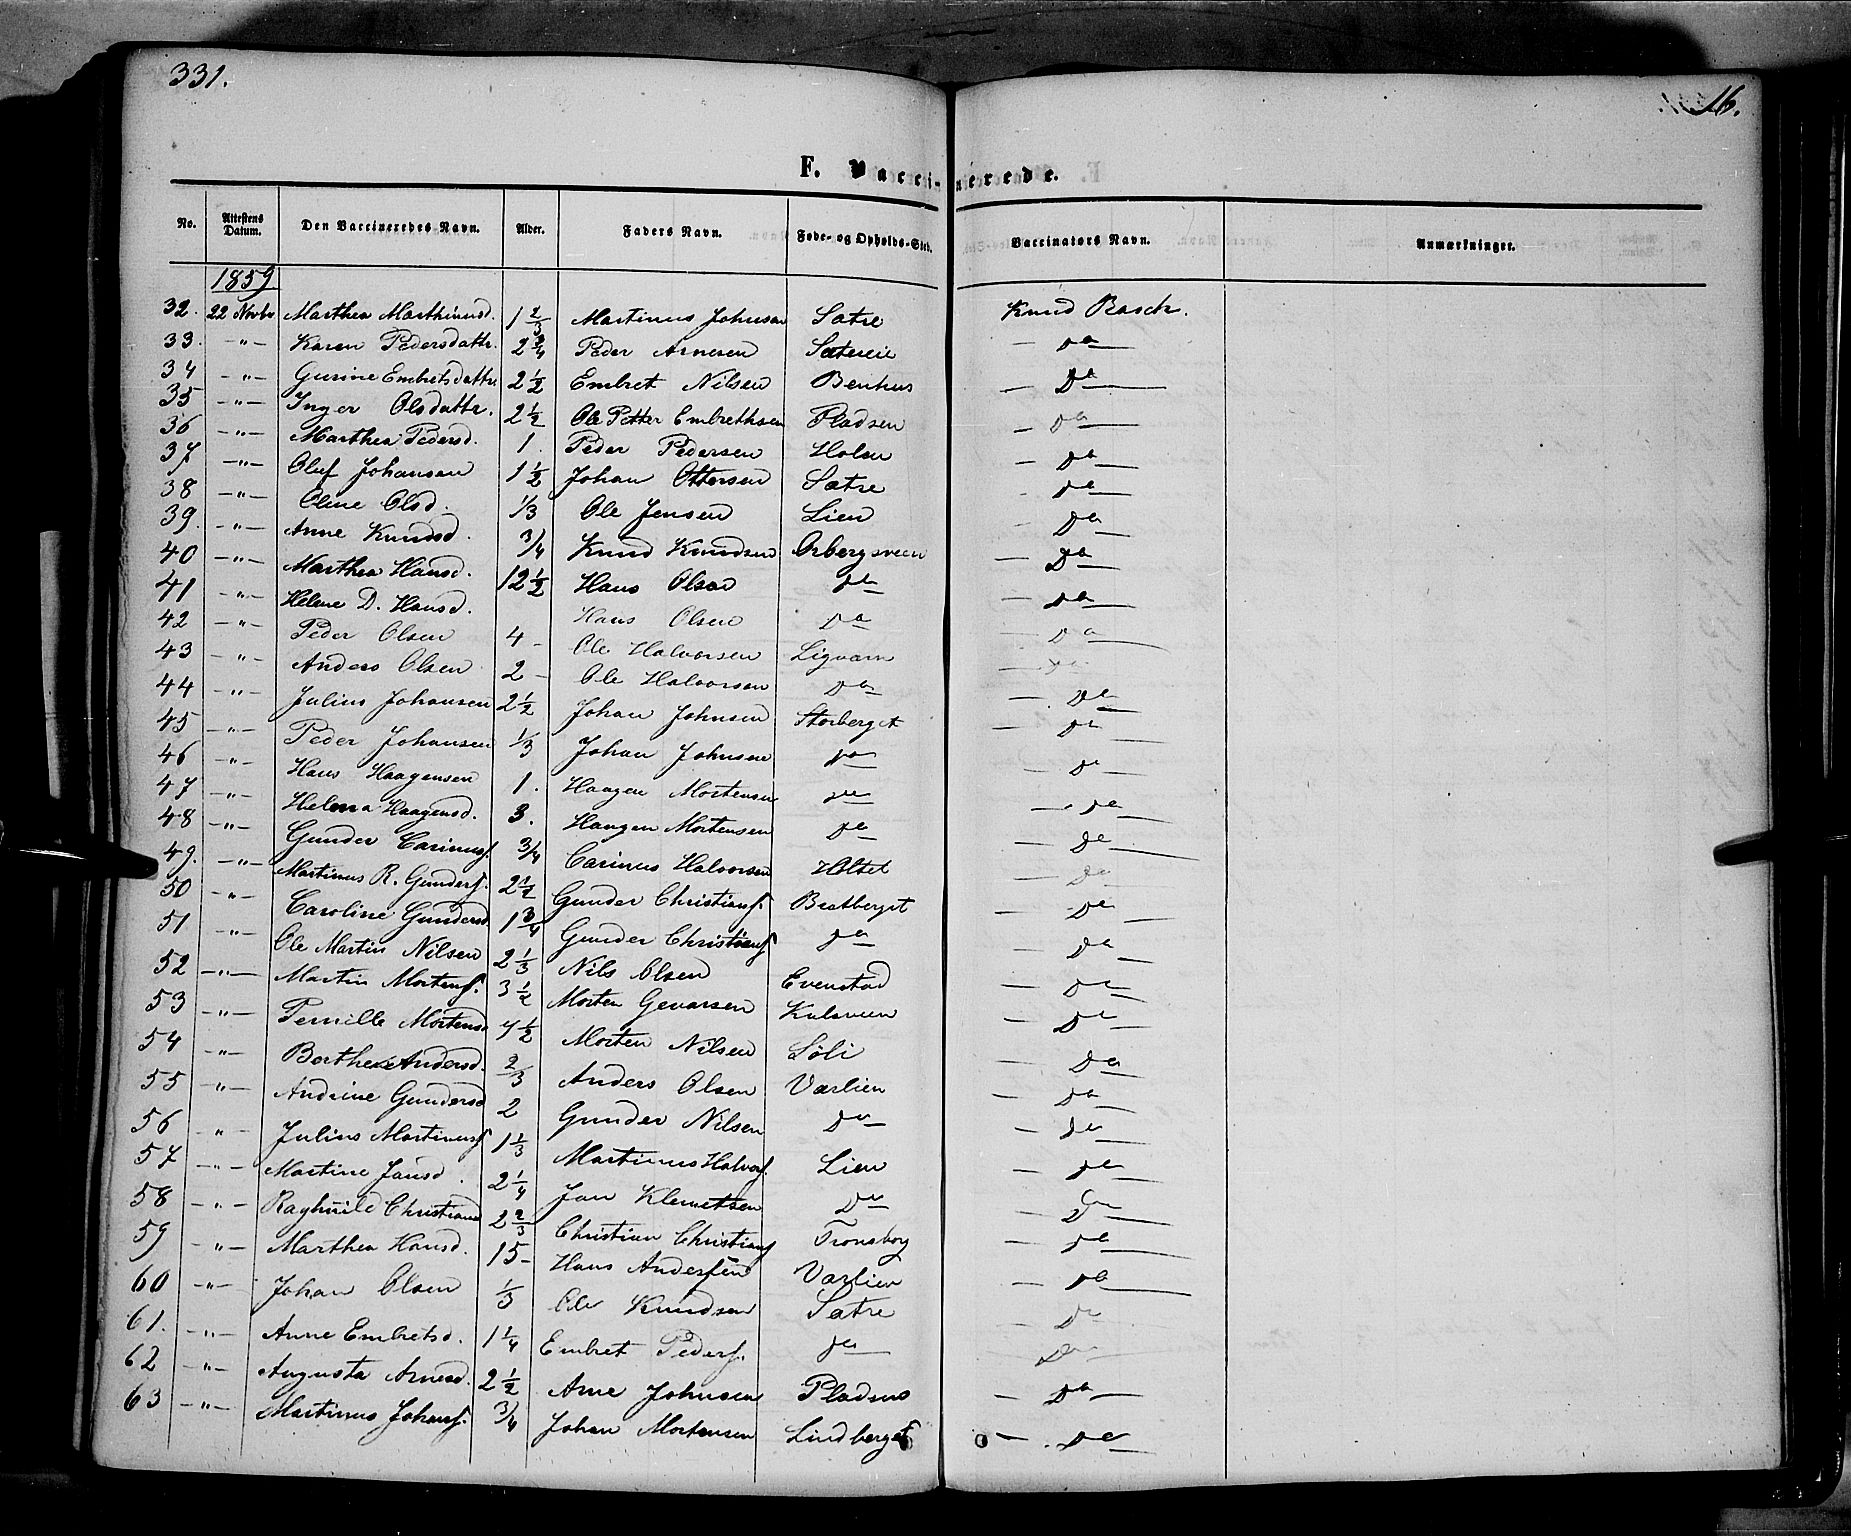 331.
16.
F. Vaccinerede.
No. Attestens Datum. Den Vaccineredes Navn. Alder. Faders Navn. Føde- og Opholds-Sted. Vaccinators Navn. Anmærkninger.
1859
32. 22 Novbr Marthea Marthinusd. 1 2/3 Martinus Johnsen Satre Knud Rasch.
33. -"- Karen Pedersdattr. 2 3/4 Peder Arnesen Do
34 -"- Gurine Embretsdattr 2 1/2 Embret Nilsen Benhus Do
35 -"- Inger Olsdattr. 2 1/2 Ole Petter Embrethsen Pladsen Do
36 -"- Marthea Pedersd. 1. Peder Pedersen Holen Do
37 -"- Oluf Johansen 1 1/2 Johan Ottersen Satre Do
38 -"- Oline Olsd. 1/3 Ole Jensen Lien Do
39. -"- Anne Knudsd. 3/4 Knud Knudsen Do
40 -"- Marthea Hansd. 12 1/2 Hans Olsen Do Do
41 -"- Helene D. Hansd. Hans Olsen Do Do
42 -"- Peder Olsen 4 - Ole Halvorsen Do
43 -"- Anders Olsen 2 - Ole Halvorsen Do Do
44 -"- Julius Johansen 2 1/2 Johan Johnsen Storberget Do
45 -"- Peder Johansen 1/3 Johan Johnsen Do Do
46 -"- Hans Haagensen 1. Haagen Mortensen Do Do
47 -"- Helena Haagensd. 3. Haagen Mortensen Do Do
48 -"- Gunder Carinusf. 3/4 Carinus Halvorsen Holtet Do
49. -"- Martinus R. Gunderf. 2 1/2 Gunder Christianf. Bratberget Do
50 -"- Caroline Gundersd 1 3/4 Gunder Christianf Do Do
51 -"- Ole Martin Nilsen 2 1/3 Nils Olsen Evenstad Do
52 -"- Martin Mortenf. 3 1/2 Morten Gevarsen Do
53 -"- Pernille Mortensd 4 1/2 Morten Nilsen Søli Do
54 -"- Berthe Andersd. 2/3 Anders Olsen Varlien Do
55 -"- Andrine Gundersd 2 Gunder Nilsen Do Do
56 " Julius Martinusf 1 1/3 Martinus Halvorf. Lien Do
57 -"- Martine Jansd. 2 1/4 Jan Klemetsen Do Do
58 -"- Raghnild Christiansd 2 2/3 Christian Christianf Tronsborg Do
59 -"- Marthea Hansd. 15 - Hans Andersen Varlien Do
60 -"- Johan Olsen 1/3 Ole Knudsen Satre Do
61. -"- Anne Embretsd. 1 1/4 Embret Pederf. Do Do
62 -"- Augusta Arnesd. 2 1/2 Arne Johnsen Pladsen Do
63 -"- Martinus Johanf. 3/4 Johan Mortensen Lindberget Do